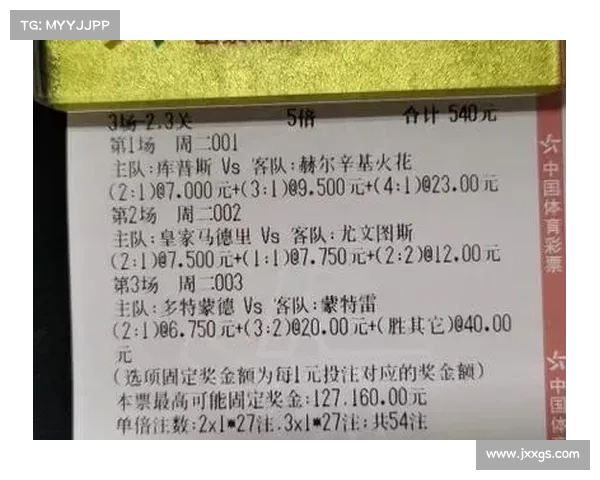 TG: MYYJJPP
3场-2.3关 5倍 合计 540元
第1场 周二001
主队:库普斯 Vs 客队:赫尔辛基火花
(2:1)@7.000元+(3:1)@9.500元+(4:1)@23.00元
第2场 周二002
主队:皇家马德里 Vs 客队:尤文图斯
(2:1)@7.500元+(1:1)@7.750元+(2:2)@12.00元
第3场 周二003
主队:多特蒙德 Vs 客队:蒙特雷
(2:1)@6.750元+(3:2)@20.00元+(胜其它)@40.00
元
(选项固定奖金额为每1元投注对应的奖金额)
本票最高可能固定奖金:127.160.00元
单倍注数:2x1*27注.3x1*27注:共54注
中国体育彩票
中国体育
www.jxxgs.com